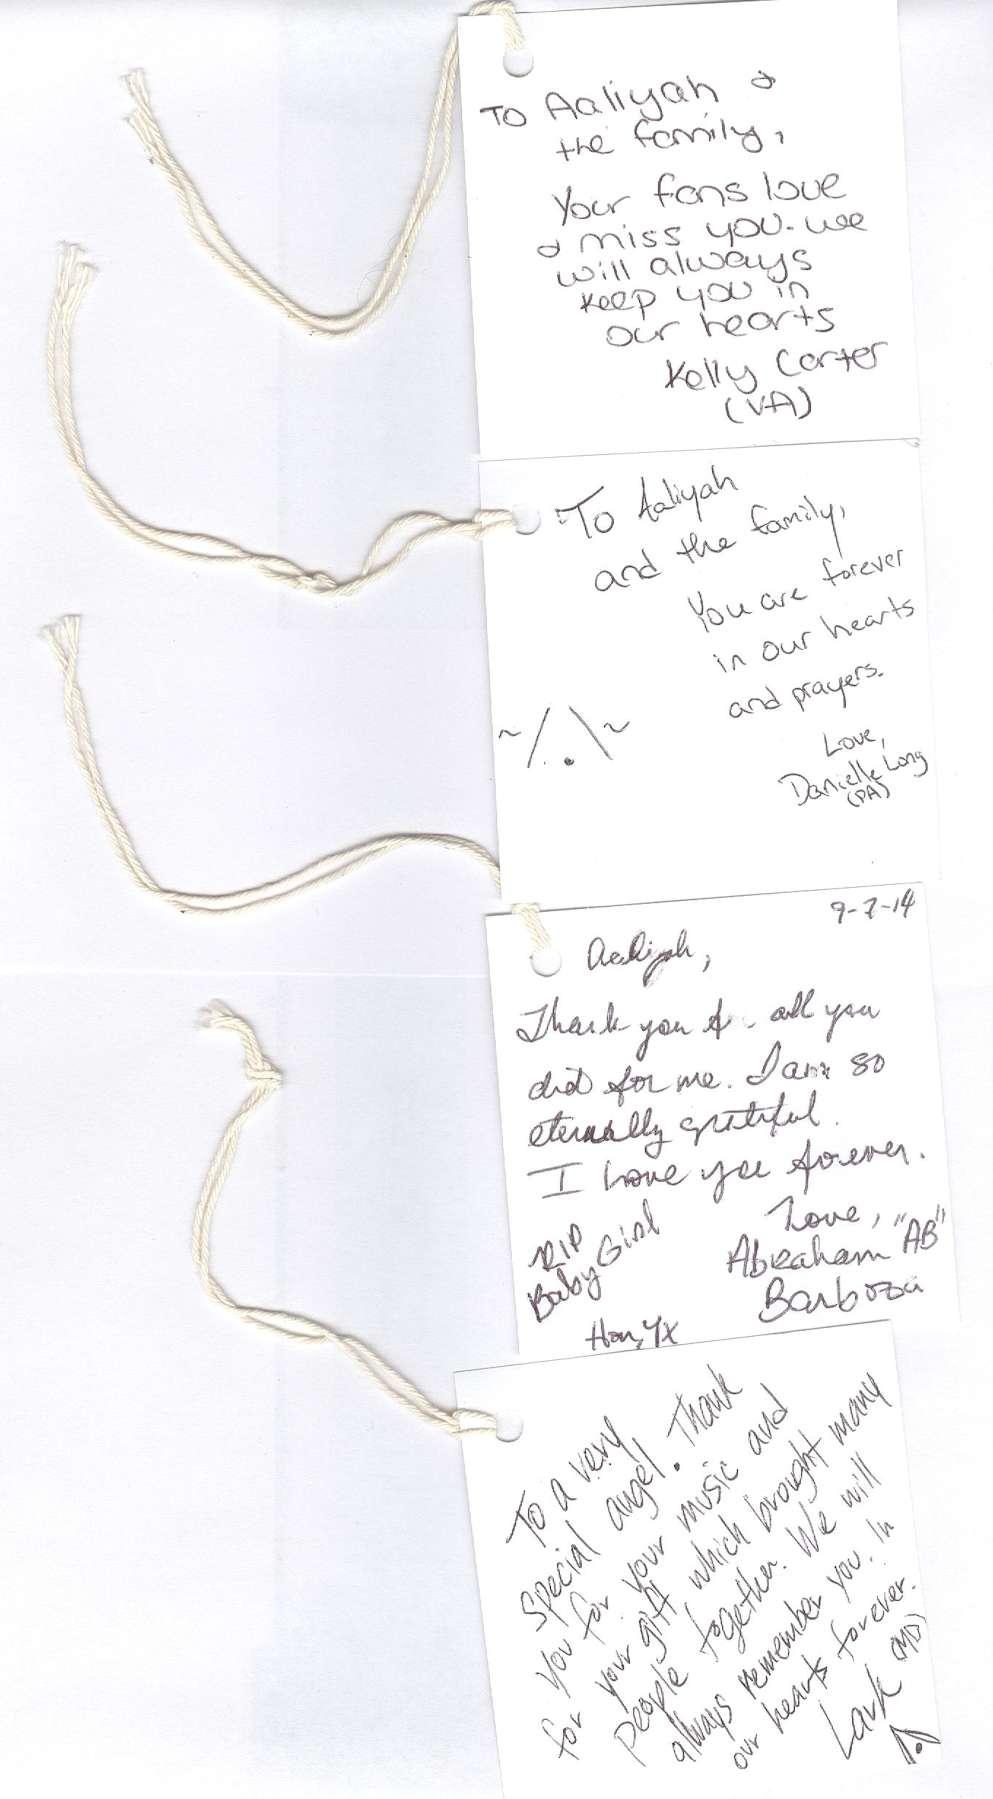 To Aaliyah &
the family,
Your fans love
& miss you. we
will always
keep you in
our hearts
Kelly Carter
(VA)
To Aaliyah
and the family,
You are forever
in our hearts
and prayers.
Love,
Danielle Long
(PA)
~/.\~
9-7-14
Aaliyah,
Thank you for all you
did for me. I am so
eternally grateful.
I love you forever.
Love,
Abraham "AB"
Barboza
RIP
Baby Girl
To a very
special angel. Thank
you for your music and
for your gift which brought many
people together. We will
always remember you. In
our hearts forever.
Lark (MD)